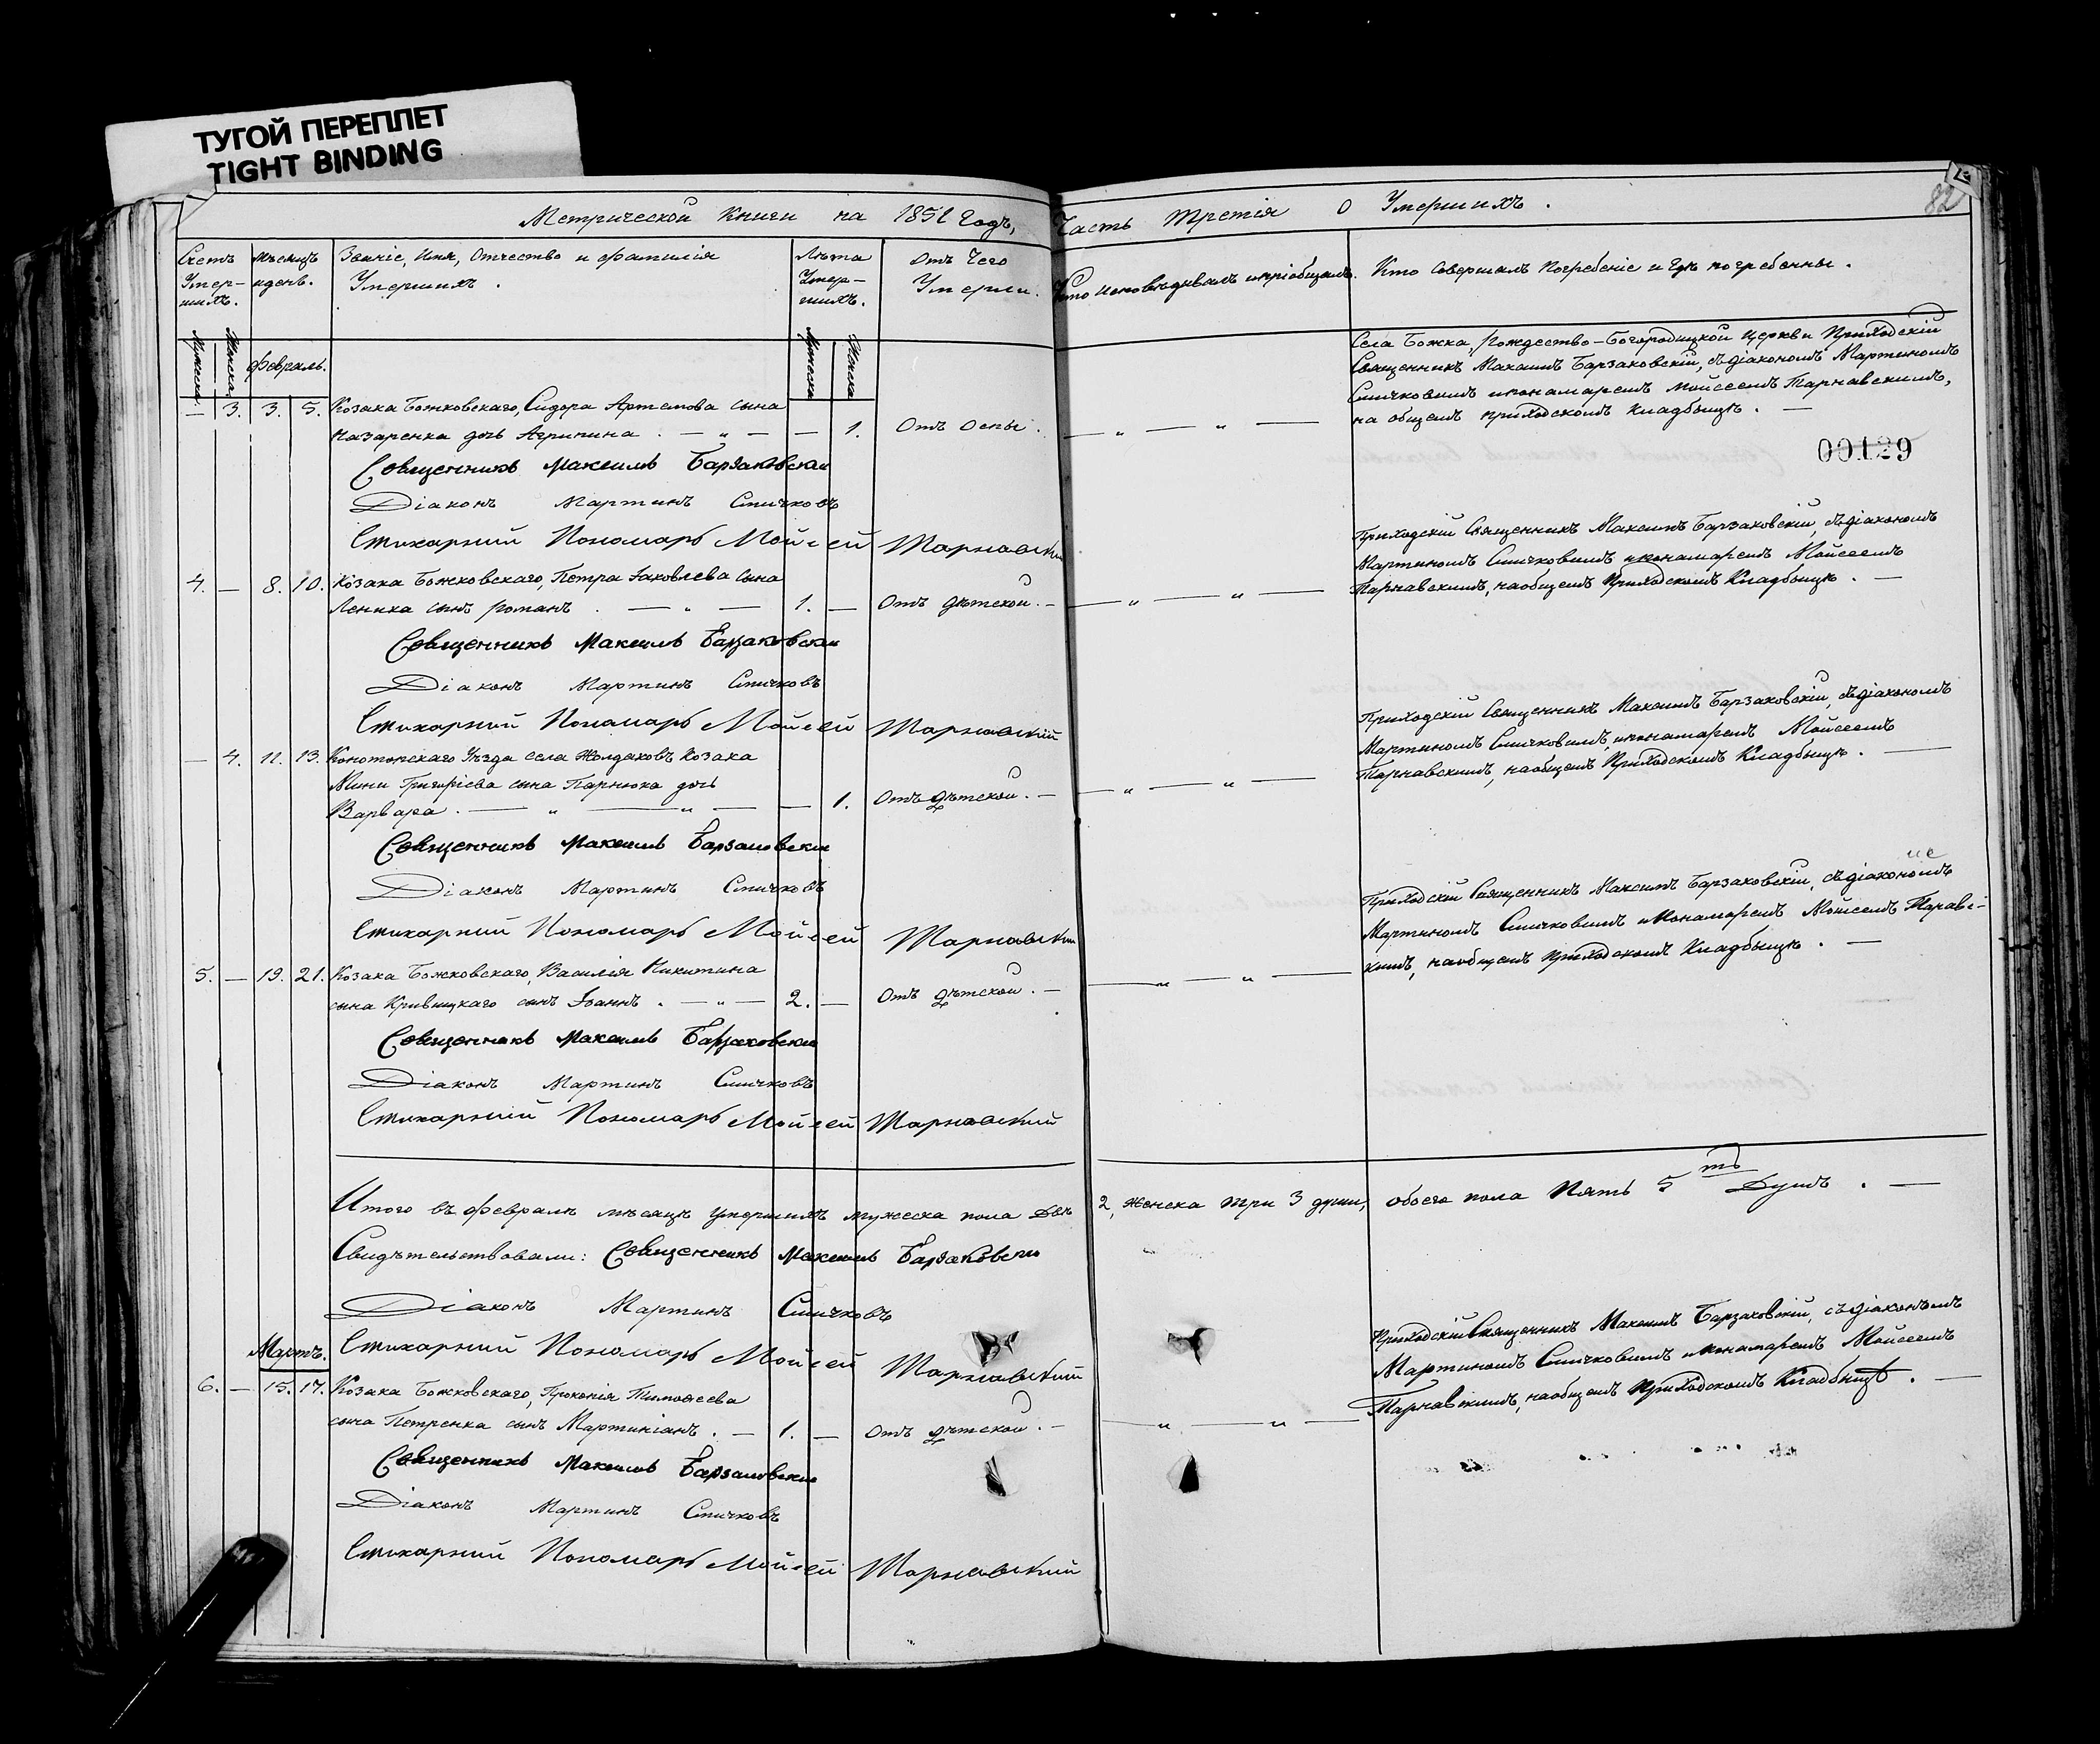 ТУГОЙ ПЕРЕПЛЕТ
TIGHT BINDING
Метрической Книги на 1851 Годъ, Часть Третія о Умершихъ.
82
Счетъ Умер-шихъ.
Мѣсяцъ и день.
Званіе, Имя, Отчество и Фамилія Умершихъ.
Лѣта Умер-шихъ.
Отъ Чего Умерли.
Кто исповѣдывалъ и пріобщалъ.
Кто Совершалъ Погребеніе и Гдѣ погребенны.
Мужеска
Женска
Февраль.
Мужеска
Женска
Села Божка, Рождество-Богородицкой Церкви Приходскій
Священникъ Махаимъ Барзаковскій, съ діакономъ Мартиномъ
Смичковимъ и понамаремъ Мойсеемъ Тарнавскимъ,
на общемъ приходскомъ кладбыщѣ. —
— 3. 3. 5. Козака Божковскаго, Сидора Артемова сына
Назаренка дочь Агрипина. — „ — — 1. Отъ Оспы. — „ — „ —
00129
Священникъ Максимъ Барзаковскій
Діаконъ Мартинъ Смичковъ
Стихарний Пономарь Мойсей Тарнавский
Приходскій Священникъ Максимъ Барзаковскій, съ діакономъ
Мартиномъ Смичковимъ и понамаремъ Мойсеемъ
Тарнавскимъ, на общемъ Приходскомъ Кладбыщѣ. —
4. — 8. 10. Козака Божковскаго, Петра Іаковлева сына
Леника сынъ Романъ. — „ — 1. — Отъ дѣтской. — — „ — „ —
Священникъ Максимъ Барзаковскій
Діаконъ Мартинъ Смичковъ
Стихарний Пономарь Мойсей Тарнавский
Приходскій Священникъ Максимъ Барзаковскій, съ діакономъ
Мартиномъ Смичковимъ, и понамаремъ Мойсеемъ
Тарнавскимъ, на общемъ Приходскомъ Кладбыщѣ. —
— 4. 11. 13. Конотопскаго Уѣзда села Жолдаковъ Козака
Мини Григоріева сына Парнюка дочь
Варвара. — „ — „ — — 1. Отъ дѣтской. — — „ — „ —
Священникъ Максимъ Барзаковскій
Діаконъ Мартинъ Смичковъ
Стихарний Пономарь Мойсей Тарнавский
Приходскій Священникъ Максимъ Барзаковскій, съ діакономъ
Мартиномъ Смичковимъ и Понамаремъ Мойсеемъ Таравс-
кимъ, на общемъ Приходскомъ Кладбыщѣ. —
5. — 19. 21. Козака Божковскаго, Василія Никитина
сына Кривицкаго сынъ Іоаннъ. — „ — 2. — Отъ дѣтской. — — „ — „ —
Священникъ Максимъ Барзаковскій
Діаконъ Мартинъ Смичковъ
Стихарний Пономарь Мойсей Тарнавский
Итого въ Февралѣ мѣсяцѣ умершихъ мужеска пола Двѣ 2, женска три 3 души, обоего пола Пять 5 ть Душъ. —
Свидѣтельствовали: Священникъ Максимъ Барзаковскій
Діаконъ Мартинъ Смичковъ
Стихарний Пономарь Мойсей Тарнавский
Мартъ.
Приходскій Священникъ Максимъ Барзаковскій, съ діакономъ
Мартиномъ Смичковимъ и понамаремъ Мойсеемъ
Тарнавскимъ, на общемъ Приходскомъ Кладбыщѣ. —
6. — 15. 17. Козака Божковскаго, Прокопія Тимофеева
сына Петренка сынъ Мартиніанъ. — 1. — Отъ дѣтской. — „ — „ —
Священникъ Максимъ Барзаковскій
Діаконъ Мартинъ Смичковъ
Стихарний Пономарь Мойсей Тарнавский